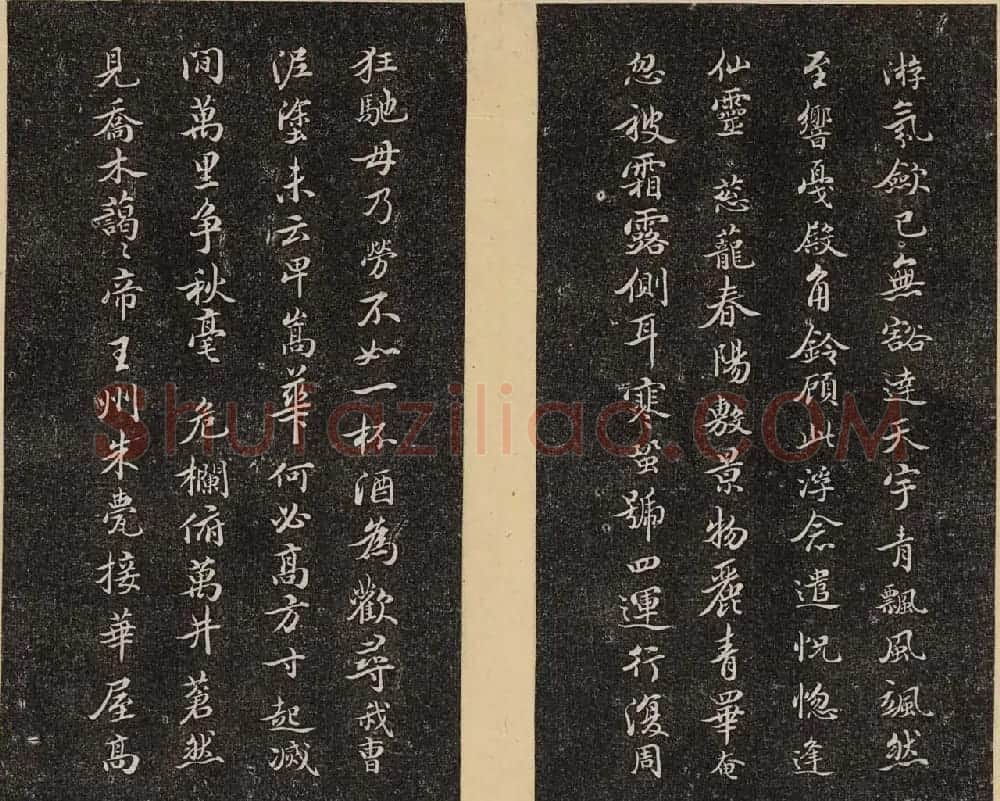 游氛歛已無豁達天宇青飄風颯然
至響戛殿角鈴顧此浮念遣怳惚逢
仙靈 葱蘢春陽敷景物麗青臯奄
忽被霜露側耳寒蛩號四運行復周
狂馳毋乃勞不如一杯酒為歡尋我曹
泥塗未云卑嵩華何必高方寸起滅
間萬里争秋毫 危欄俯萬井蒼然
見喬木藹〻帝王州朱甍接華屋高
Shufaziliao.COM